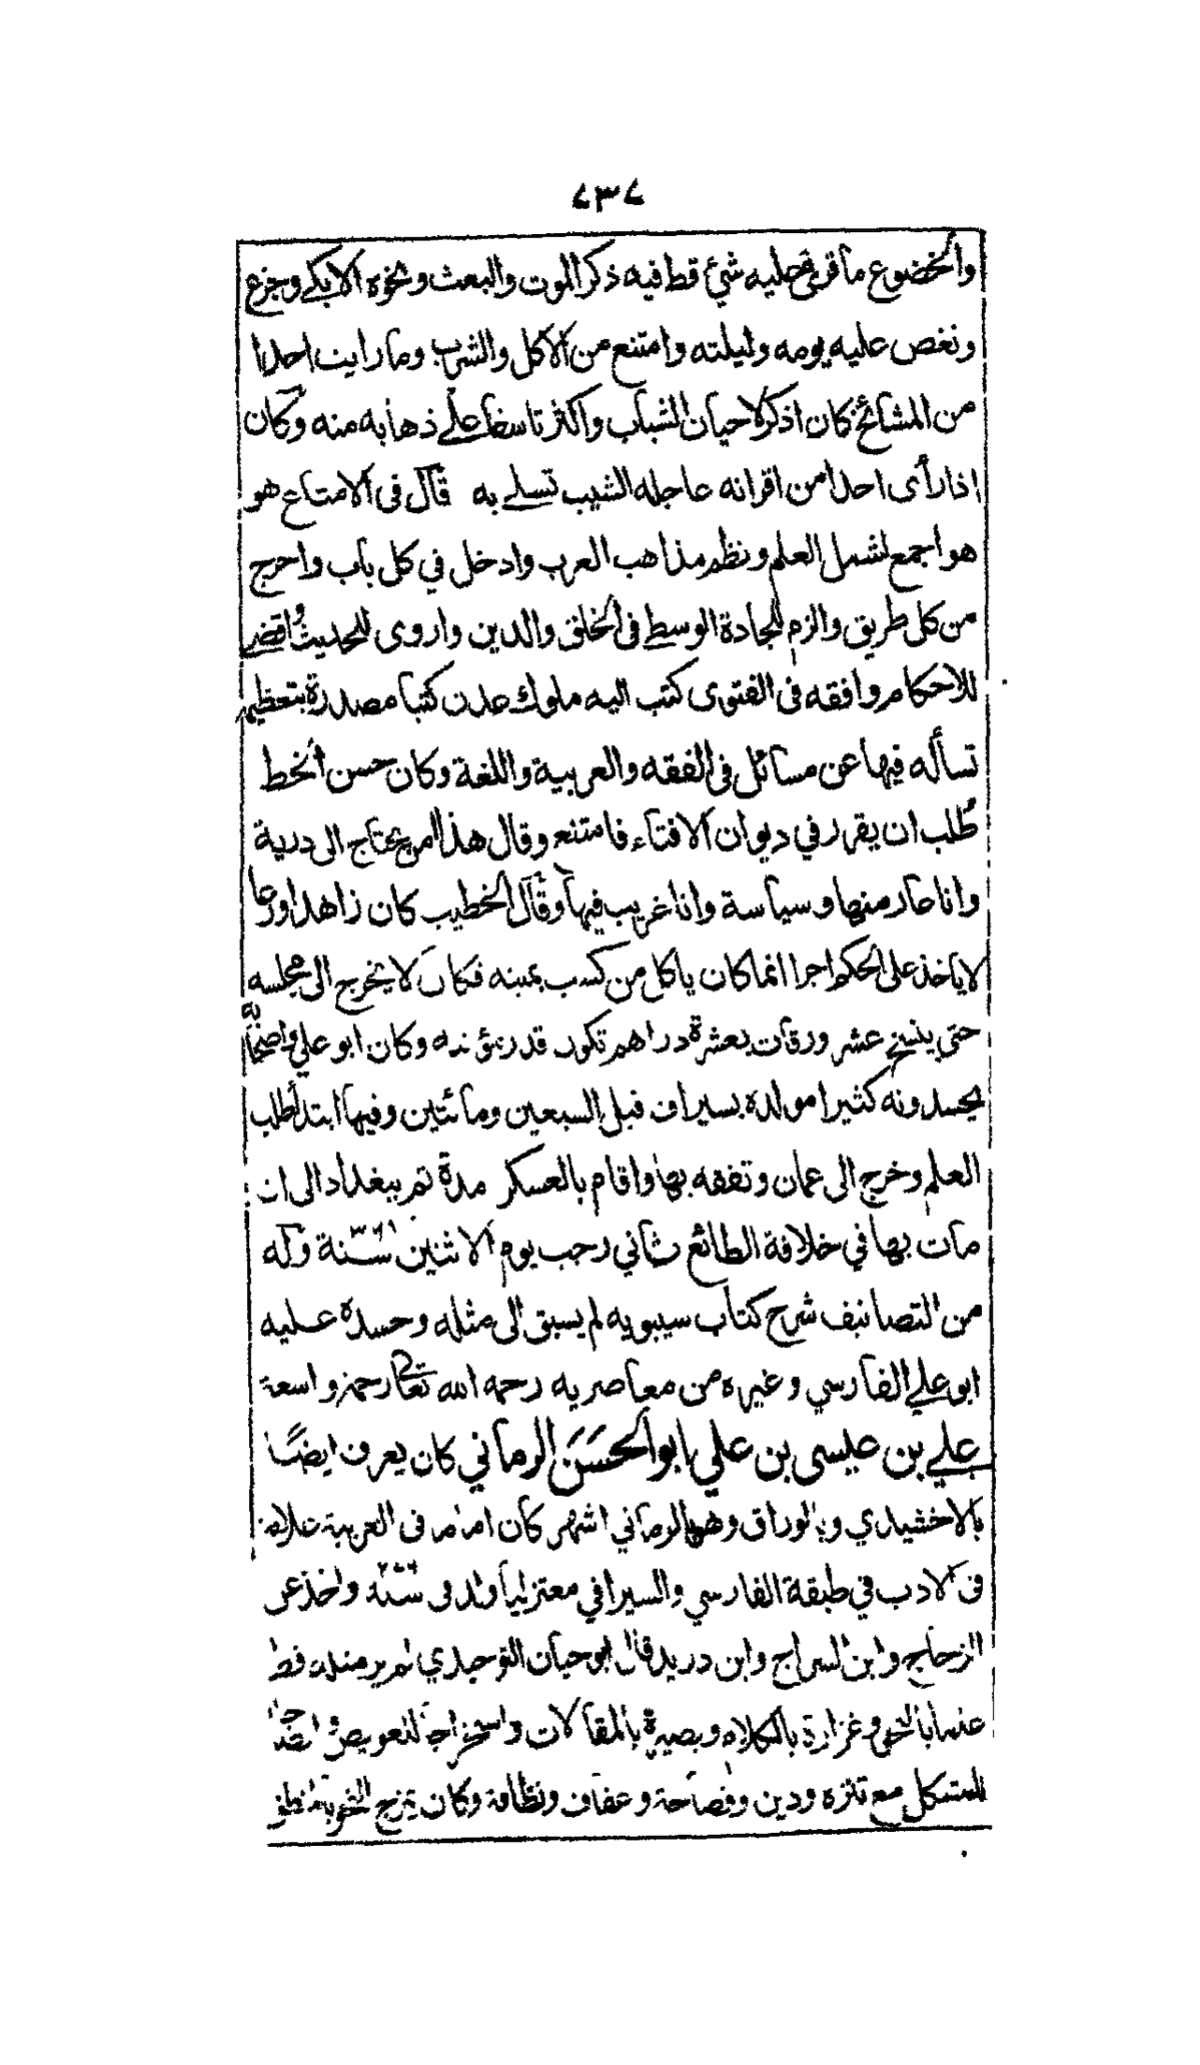 ٧٣٧
والخضوع ما قرئ عليه شئ قط فيه ذكر الموت والبعث ونحوه الا بكى وجزع
ونغص عليه يومه وليلته وامتنع من الاكل والشرب وما رايت احدا
من المشائخ كان اذكر لاحيان الشباب واكثر تاسفا على ذهابه منه وكان
اذا رأى احدا من اقرانه عاجله الشيب تسلى به قال فى الامتاع هو
هو اجمع لشمل العلم ونظم مذاهب العرب وادخل في كل باب واخرج
من كل طريق والزم للجادة الوسطى فى الخلق والدين واروى للحديث واقضى
للاحكام وافقه فى الفتوى كتب اليه ملوك عدن كتبا مصدرة بتعظيم
تسأله فيها عن مسائل فى الفقه والعربية واللغة وكان حسن الخط
طلب ان يقرر في ديوان الافتاء فامتنع وقال هذا امر يحتاج الى دربة
وانا عار منها وسياسة وانا غريب فيها وقال الخطيب كان زاهدا ورعا
لا ياخذ على الحكم اجرا انما كان ياكل من كسب يمينه فكان لا يخرج الى مجلسه
حتى ينسخ عشر ورقات بعشرة دراهم تكون قدر مؤنته وكان ابو علي واصحابه
يحسدونه كثيرا مولده بسيراف قبل السبعين ومائتين وفيها ابتدأ طلب
العلم وخرج الى عمان وتفقه بها واقام بالعسكر مدة ثم ببغداد الى ان
مات بها في خلافة الطائع ثاني رجب يوم الاثنين سنة ٣٦٨ وله
من التصانيف شرح كتاب سيبويه لم يسبق الى مثله وحسده عليه
ابو علي الفارسي وغيره من معاصريه رحمه الله تعالى رحمة واسعة
علي بن عيسى بن علي ابو الحسن الرماني كان يعرف ايضا
بالاخشيدي وبالوراق وهو بالرماني اشهر كان اماما فى العربية علامة
فى الادب في طبقة الفارسي والسيرافي معتزليا ولد فى سنة ٢٧٦ واخذ عن
الزجاج وابن السراج وابن دريد قال ابو حيان التوحيدي لم ير مثله قط
علما بالنحو وغزارة بالكلام وبصيرة بالمقالات واستخراجا للعويص وايضاحا
للمشكل مع تنزه ودين وفصاحة وعفاف ونظافة وكان يمزج النحو بالمنطق